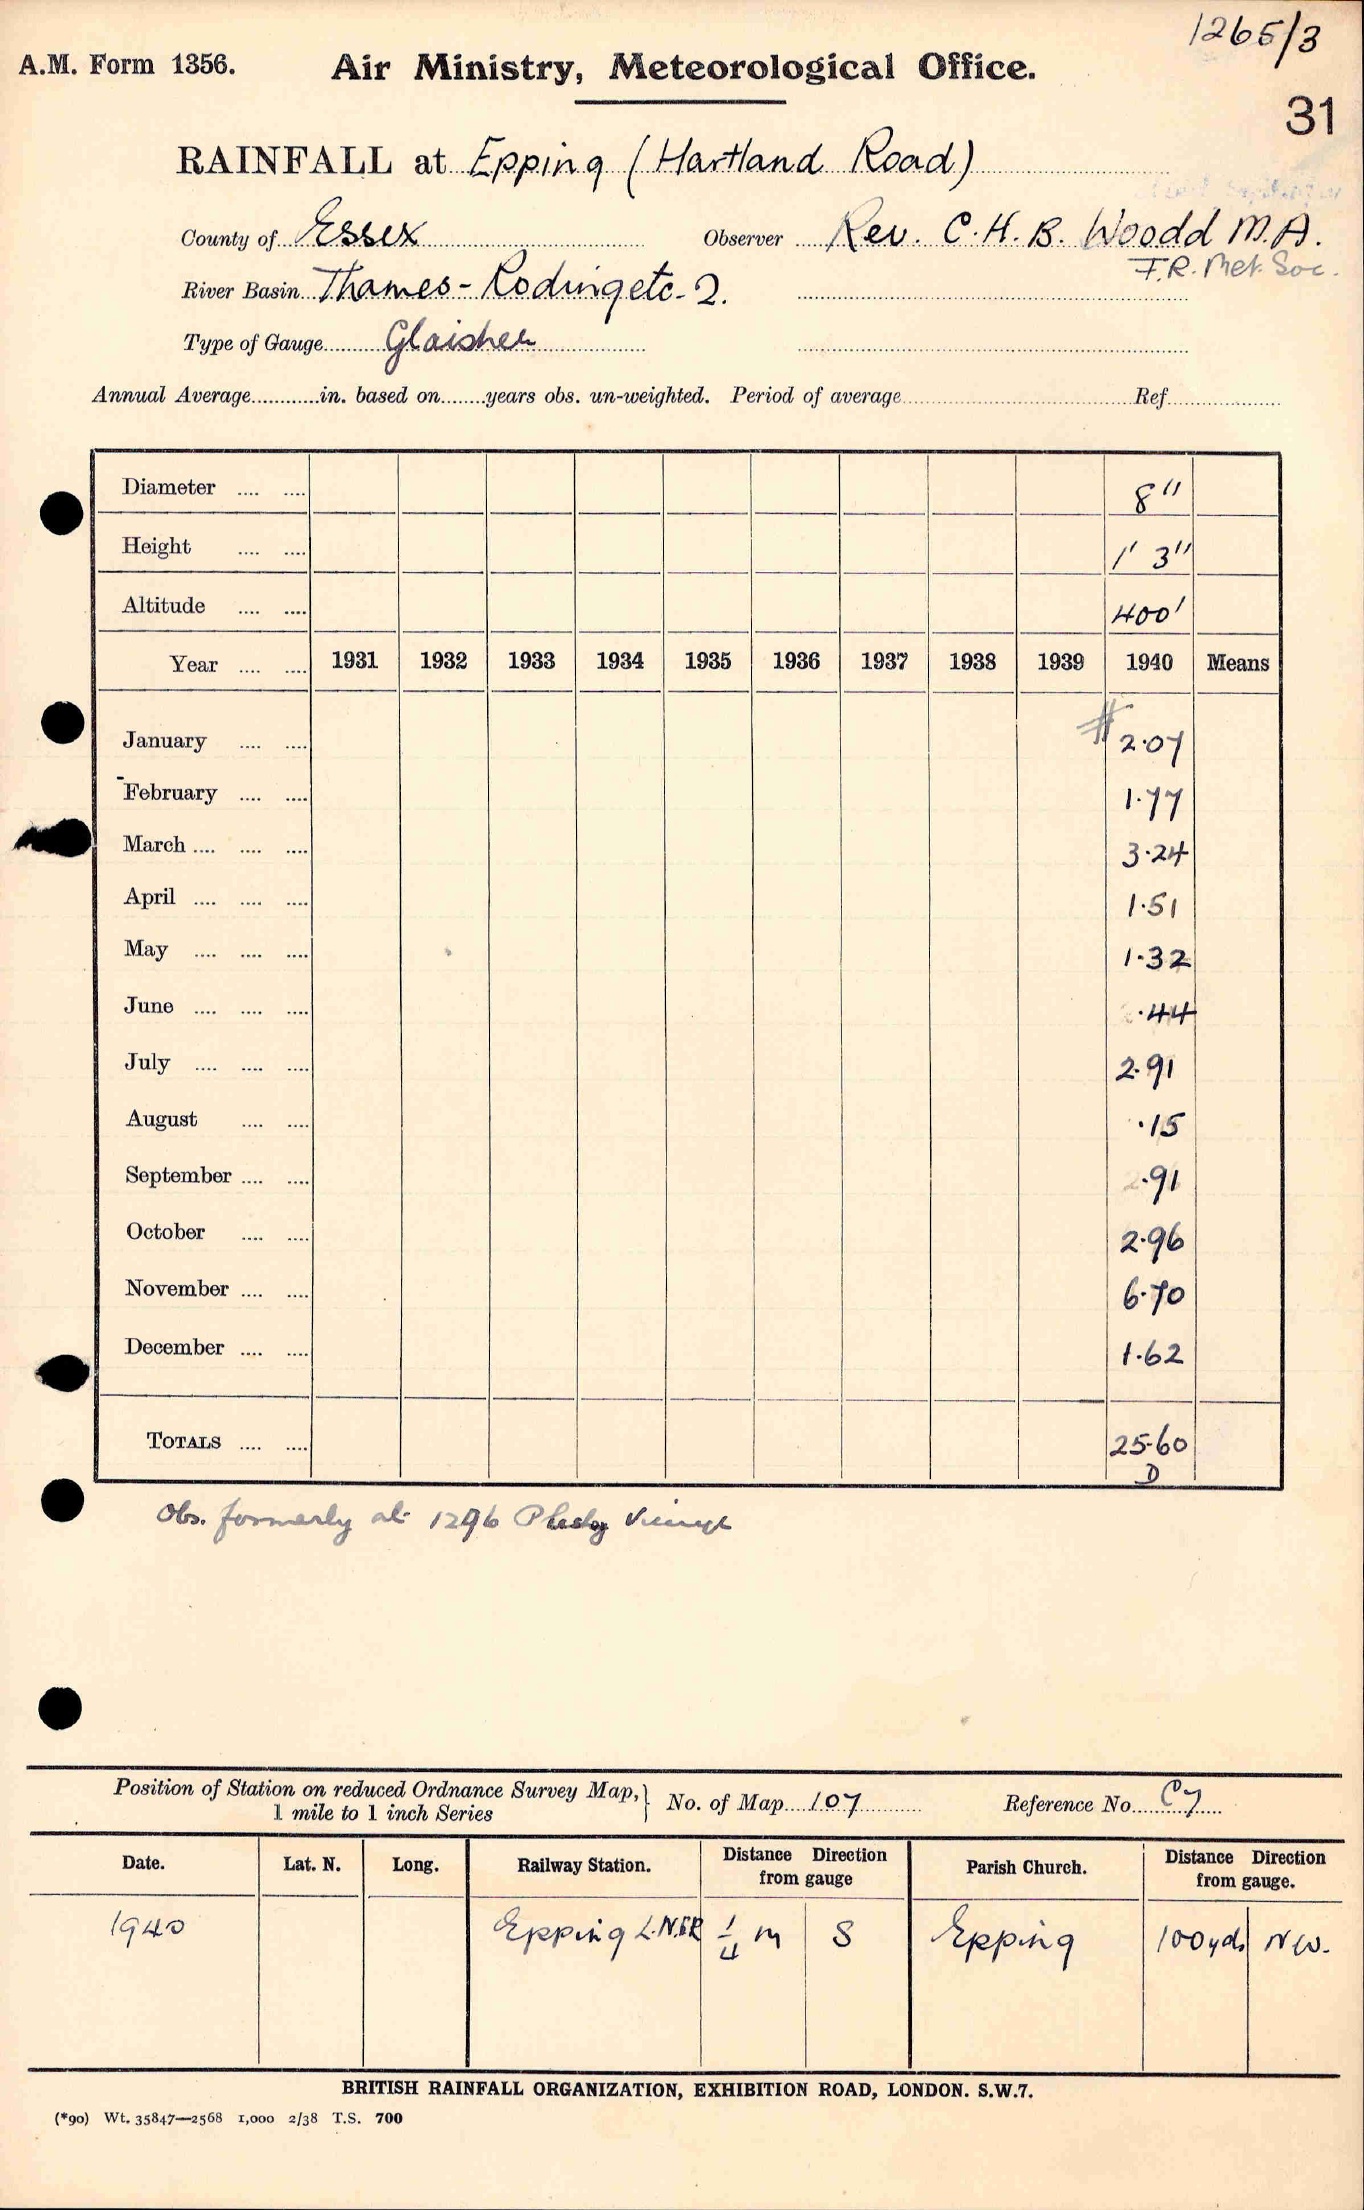 1265/3
A.M. Form 1356. Air Ministry, Meteorological Office.
31
RAINFALL at Epping (Hartland Road)
County of Essex Observer Rev. C.H.B. Woodd M.A.
F.R. Met. Soc.
River Basin Thames - Roding etc - 2.
Type of Gauge Glaisher
Annual Average in. based on years obs. un-weighted. Period of average Ref
Diameter 8"
Height 1' 3"
Altitude 400'
Year 1931 1932 1933 1934 1935 1936 1937 1938 1939 1940 Means
January # 2.07
February 1.77
March 3.24
April 1.51
May 1.32
June .44
July 2.91
August .15
September .91
October 2.96
November 6.70
December 1.62
TOTALS 25.60
D
Obs. formerly at 1296 Pleshey
Position of Station on reduced Ordnance Survey Map, No. of Map 107 Reference No. C7
1 mile to 1 inch Series
Date. Lat. N. Long. Railway Station. Distance Direction from gauge Parish Church. Distance Direction from gauge.
1940 Epping L.N.E.R 1/4 m S Epping 100 yds N.W.
BRITISH RAINFALL ORGANIZATION, EXHIBITION ROAD, LONDON. S.W.7.
(*90) Wt. 35847—2568 1,000 2/38 T.S. 700